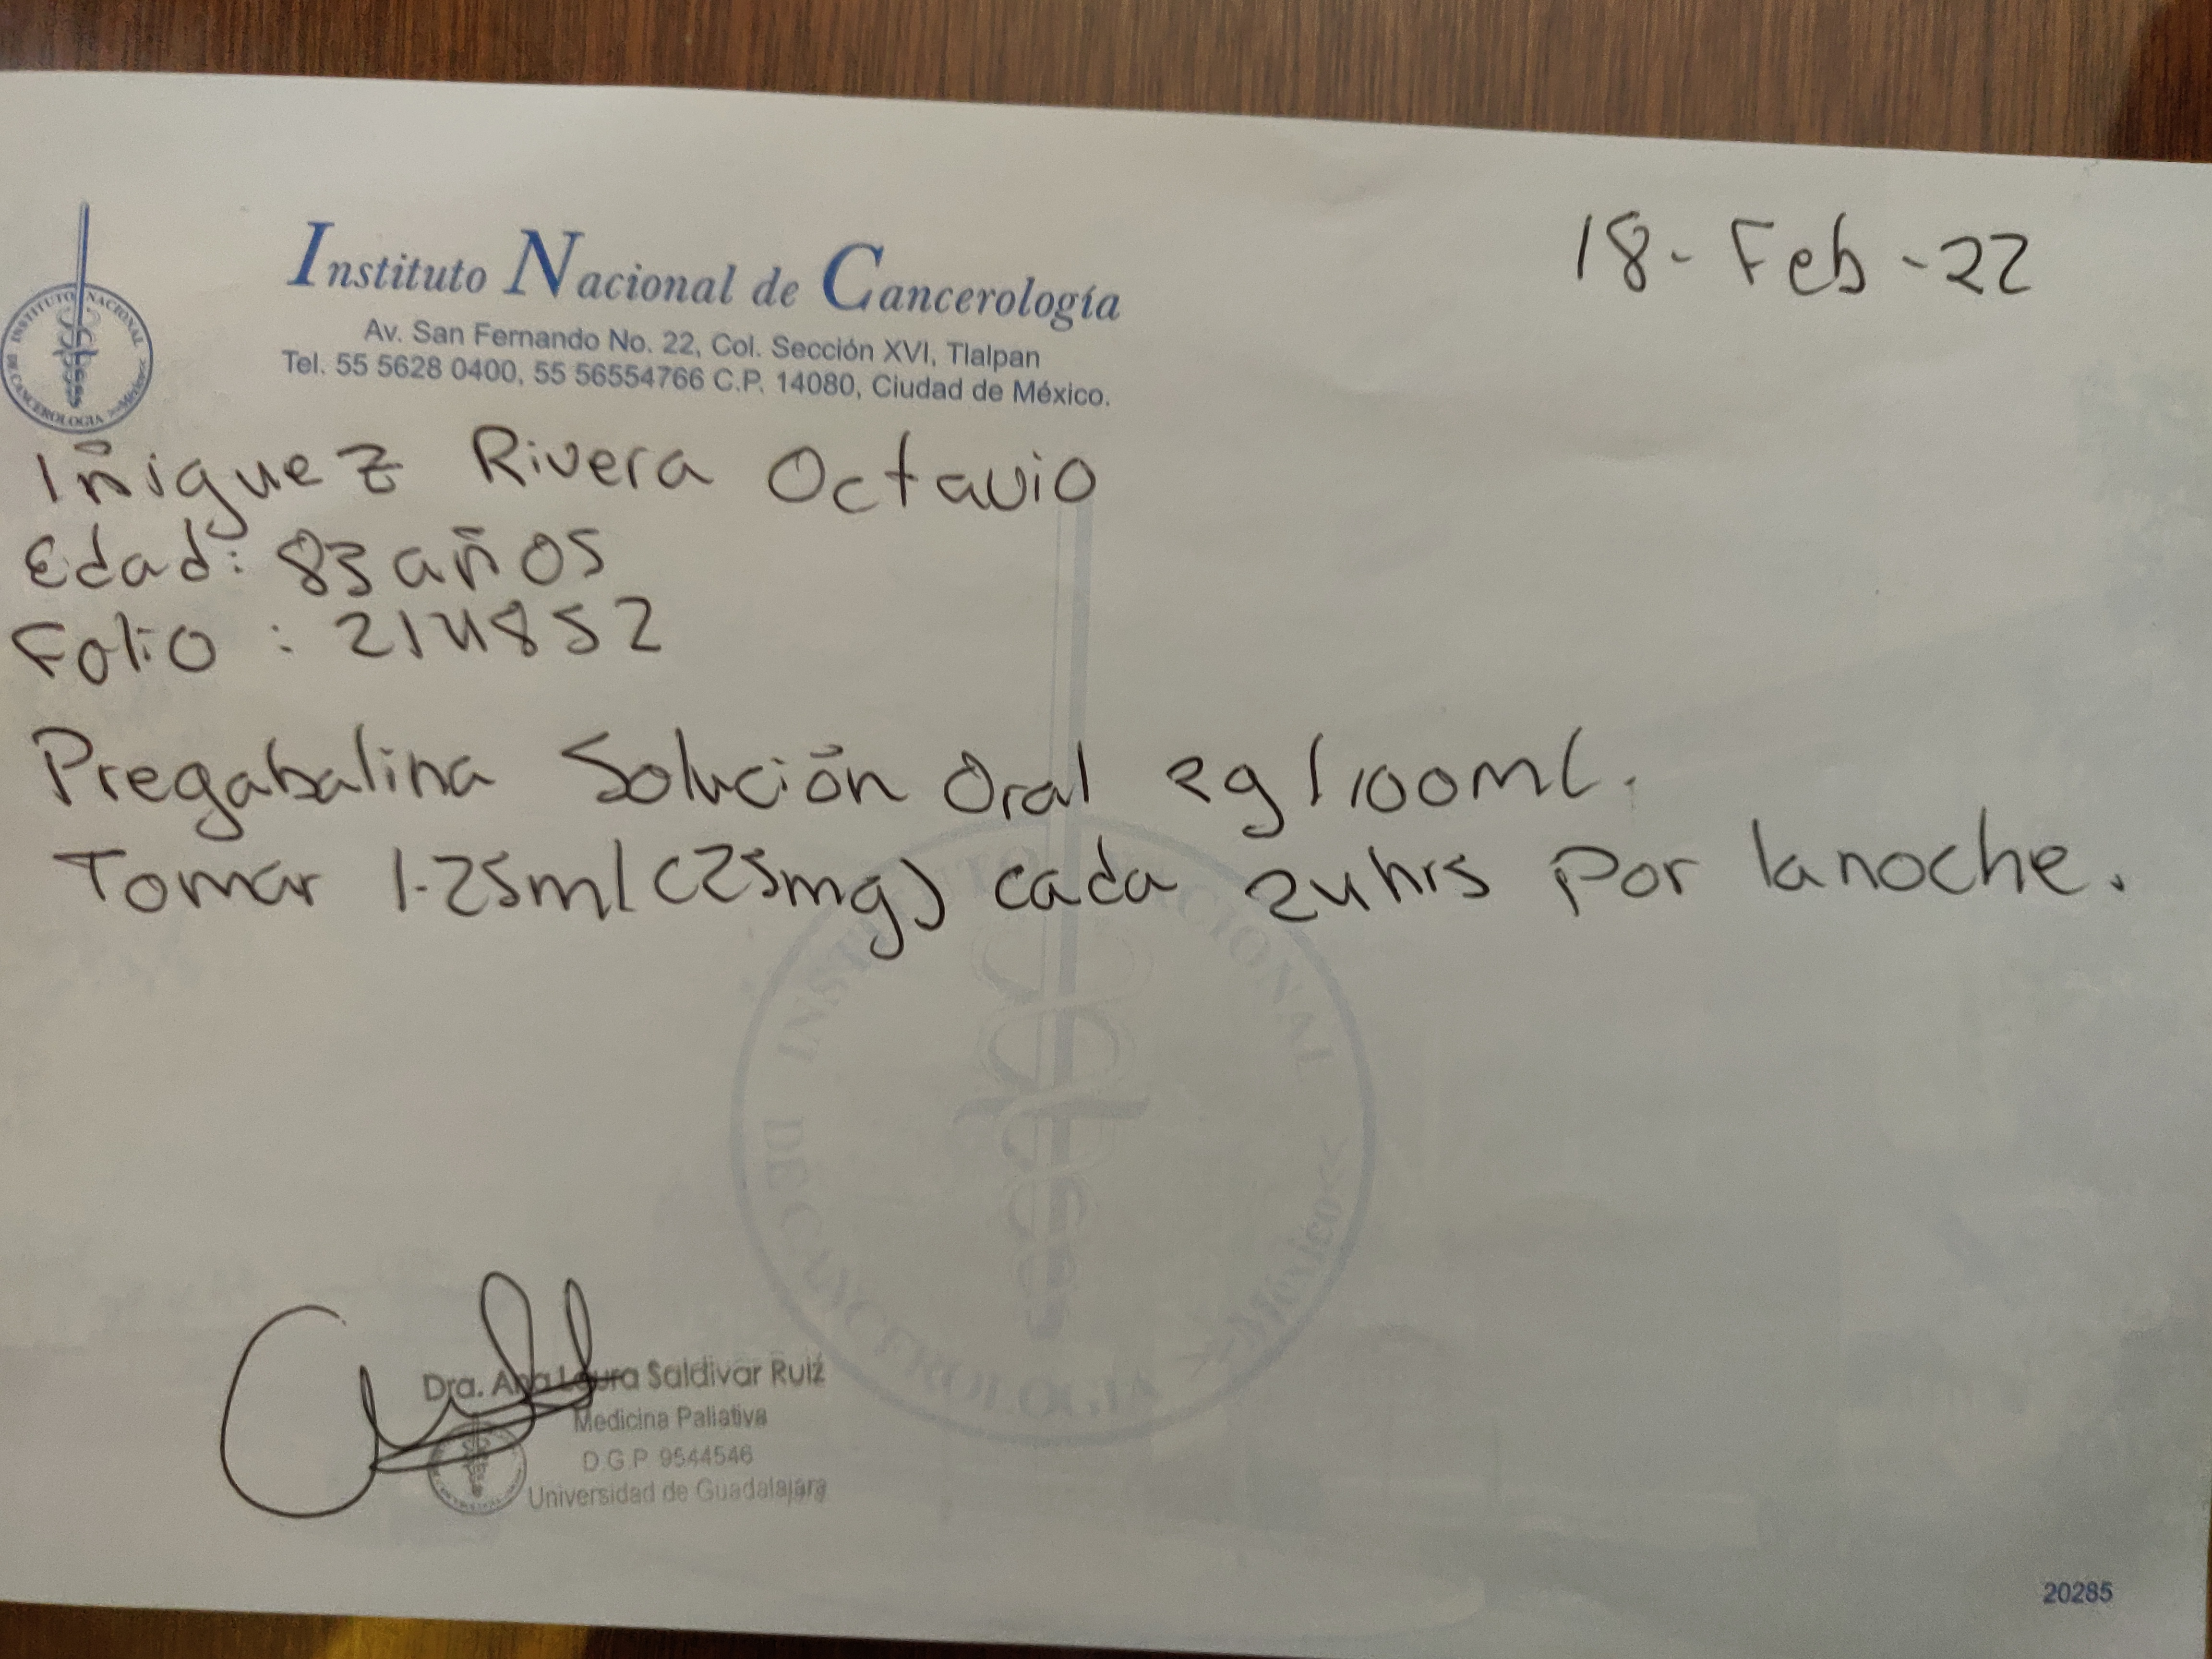 Instituto Nacional de Cancerología
Av. San Fernando No. 22, Col. Sección XVI, Tlalpan
Tel. 55 5628 0400, 55 56554766 C.P. 14080, Ciudad de México.
18-Feb-22
INSTITUTO NACIONAL DE CANCEROLOGIA >>México<<
Iñiguez Rivera Octavio
Edad: 83 años
Folio : 214852
Pregabalina Solución Oral 2g/100ml.
Tomar 1.25ml (25mg) cada 24hrs por la noche.
INSTITUTO NACIONAL DE CANCEROLOGIA >>México<<
Dra. Ana Laura Saldivar Ruiz
Medicina Paliativa
D.G.P 9544546
Universidad de Guadalajara
20285